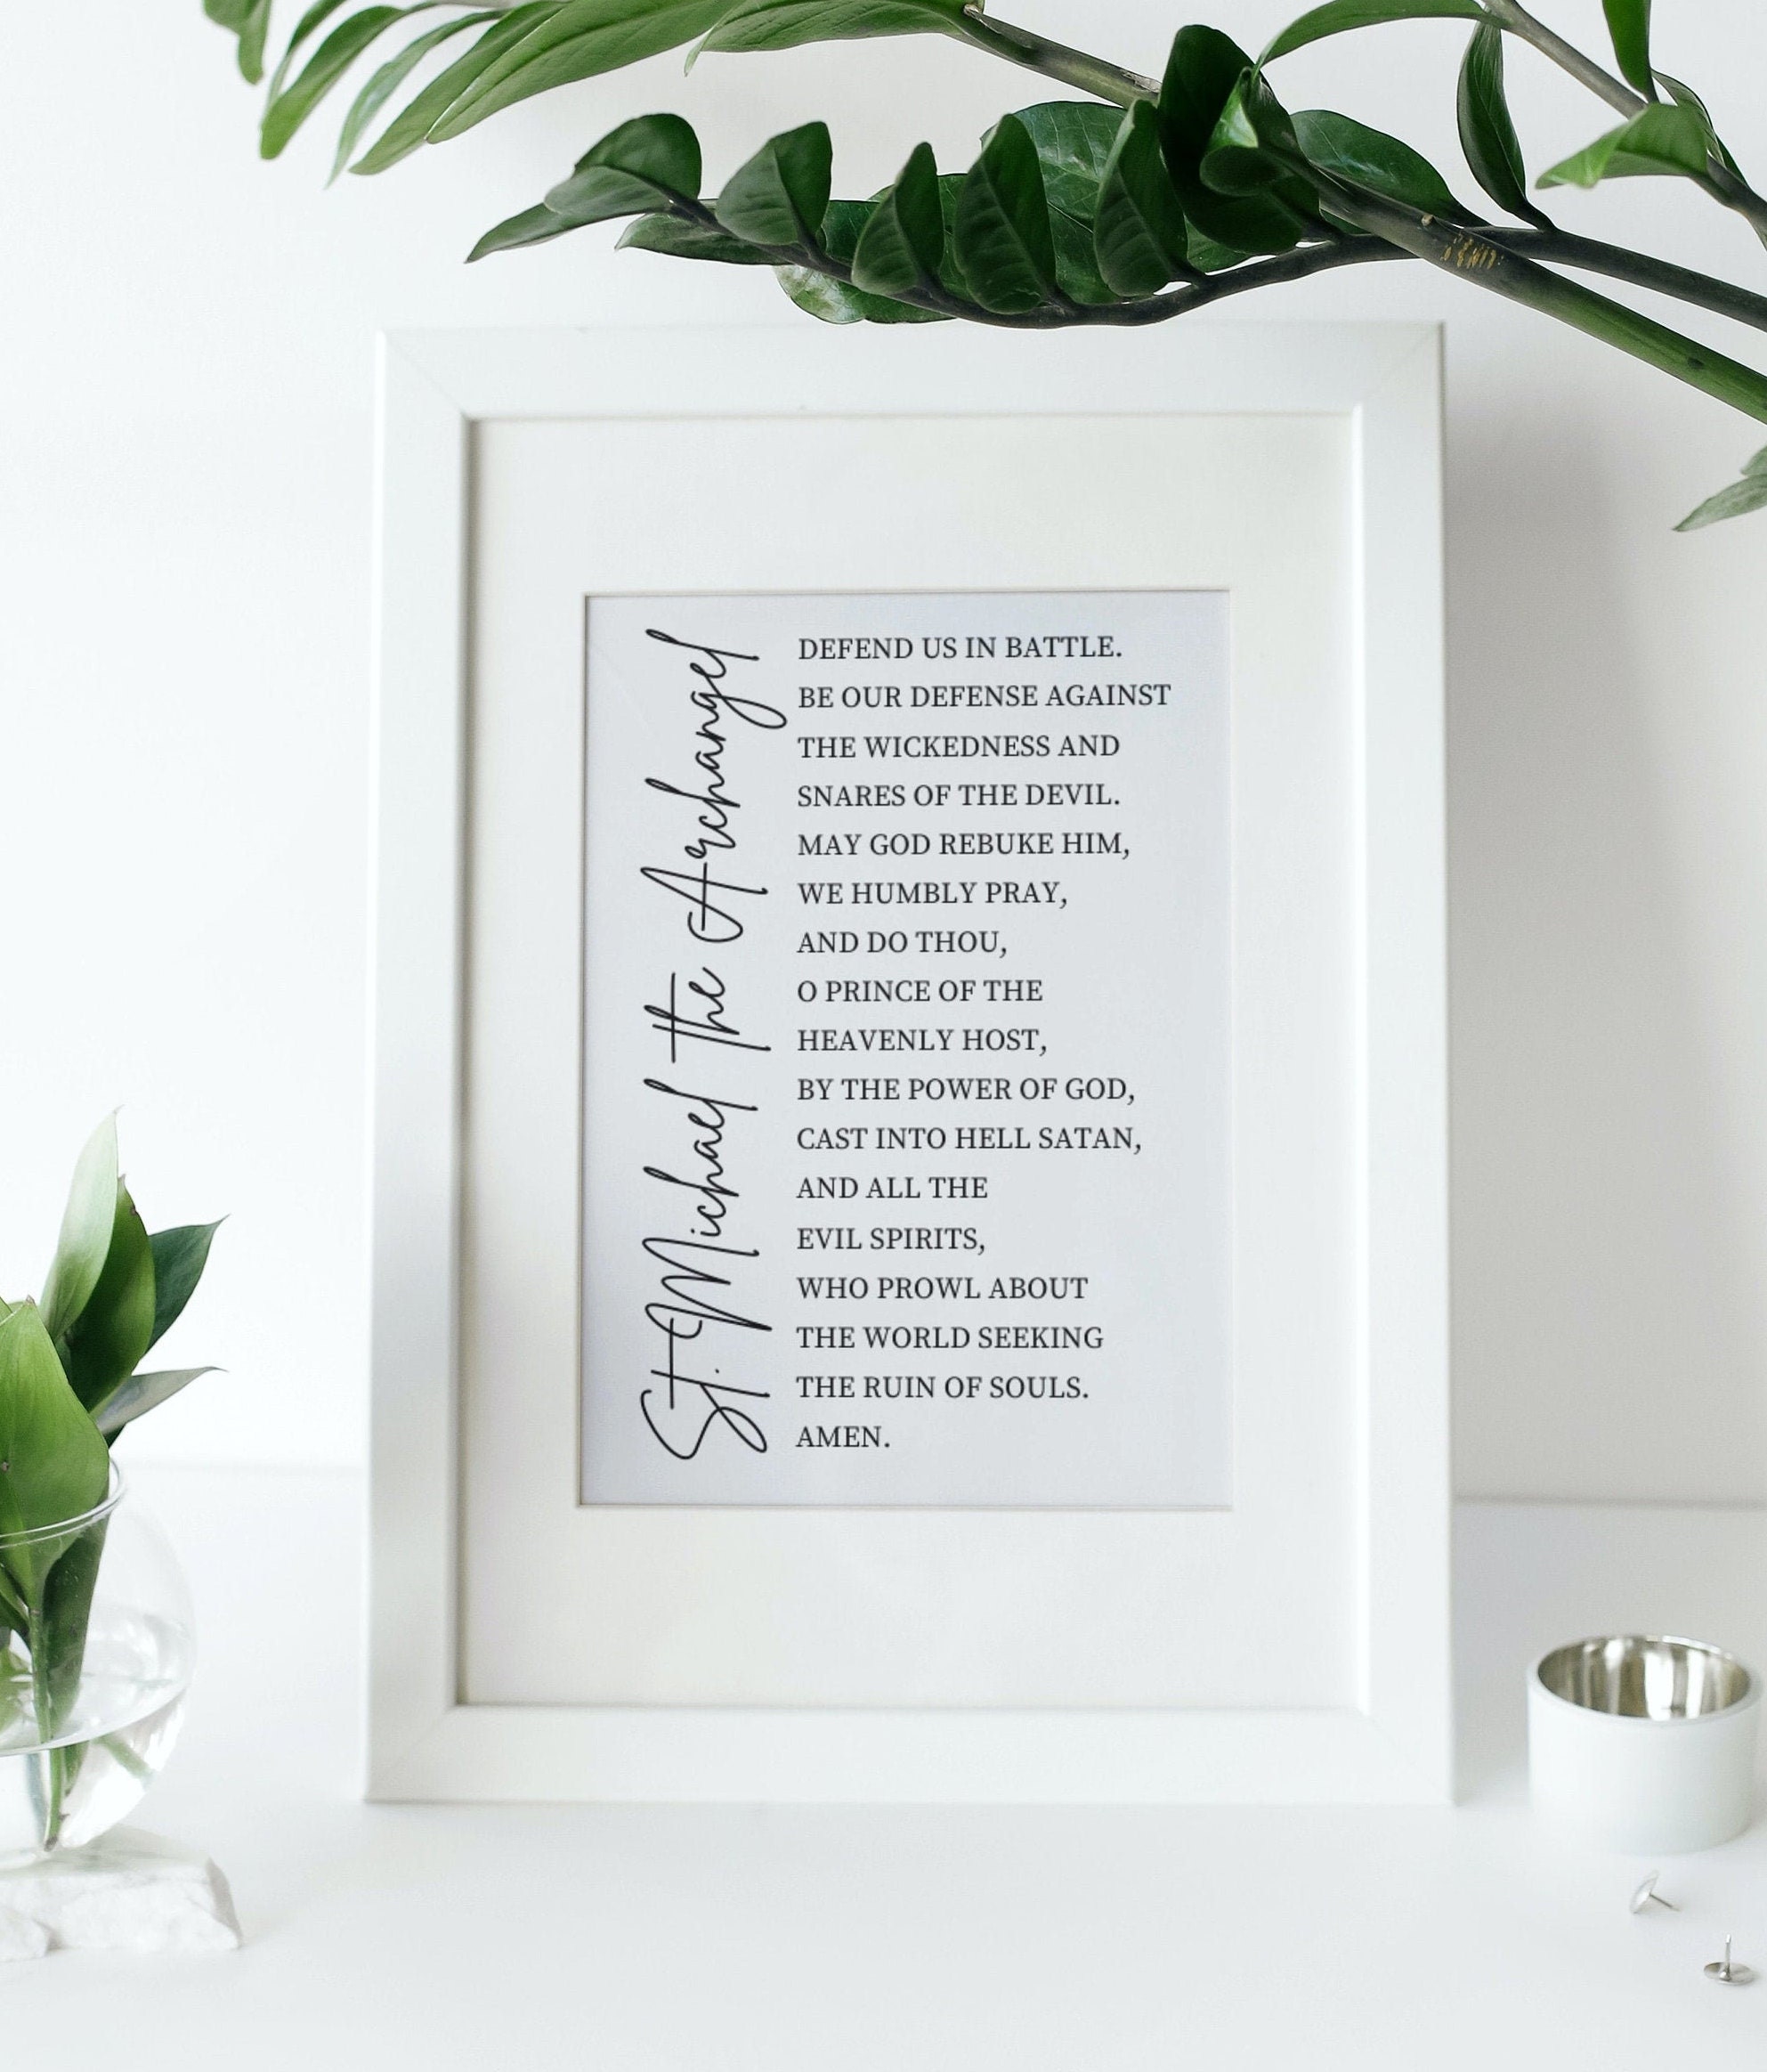 St. Michael the Archangel
DEFEND US IN BATTLE.
BE OUR DEFENSE AGAINST
THE WICKEDNESS AND
SNARES OF THE DEVIL.
MAY GOD REBUKE HIM,
WE HUMBLY PRAY,
AND DO THOU,
O PRINCE OF THE
HEAVENLY HOST,
BY THE POWER OF GOD,
CAST INTO HELL SATAN,
AND ALL THE
EVIL SPIRITS,
WHO PROWL ABOUT
THE WORLD SEEKING
THE RUIN OF SOULS.
AMEN.